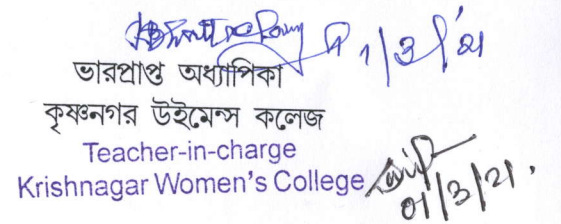 1/3/21
ভারপ্রাপ্ত অধ্যাপিকা
কৃষ্ণনগর উইমেন্স কলেজ
Teacher-in-charge
Krishnagar Women's College
01/3/21.